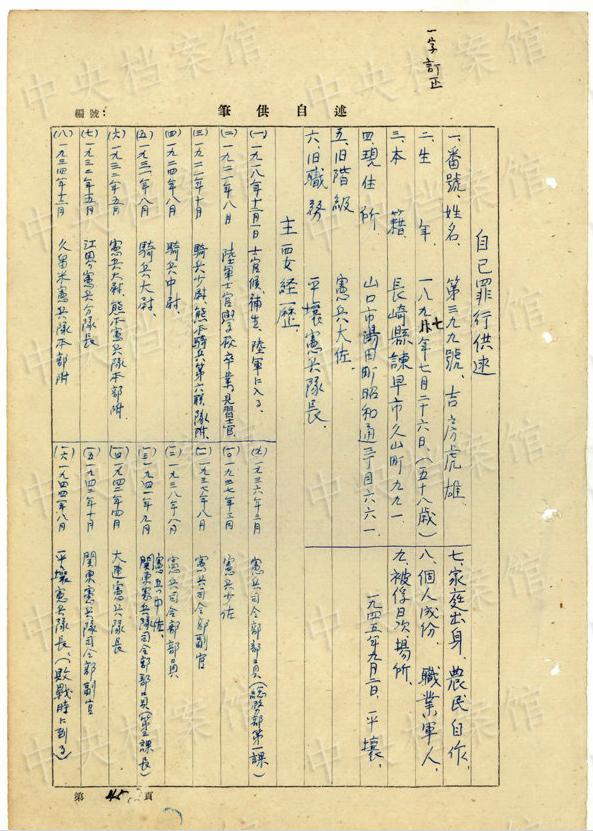 一字訂正
述自供筆
編號：
自己罪行供述
一、番號、姓名、第三九九號、吉房虎雄、
二、生年、一八九七年七月二十六日、(五十八歲)
三、本籍、長崎縣諫早市久山町九九一
四、現住所、山口市湯田町昭和通三丁目六六一
五、旧階級 憲兵大佐、
六、旧職務 平壤憲兵隊長、
七、家庭出身、農民自作、
八、個人成份、職業軍人、
九、被俘日次場所、
一九四五年九月二日、平壤、
主要経歴、
(一)一九一八年十二月一日 士官候補生、陸軍に入る、
(二)一九二一年八月 陸軍士官學校卒業、見習士官、
(三)一九二一年十月 騎兵少尉、熊本騎兵第六聯隊附、
(四)一九二四年八月 騎兵中尉、
(五)一九三一年八月 騎兵大尉、
(六)一九三二年五月 憲兵大尉、熊本憲兵隊本部附、
(七)一九三三年五月 憲兵分隊長
(八)一九三四年十二月 久留米憲兵隊本部附
(九)一九三六年三月 憲兵司令部部員(総務部第一課)
(一〇)一九三七年三月 憲兵少佐
(一一)一九三七年八月 憲兵司令部副官
(一二)一九三八年八月 憲兵司令部部員
(一三)一九四一年九月 憲兵中佐、関東憲兵隊司令部部員(第三課長)
(一四)一九四二年四月 大連憲兵隊長
(一五)一九四三年十月 関東憲兵隊司令部副官
(一六)一九四四年八月 平壤憲兵隊長、(敗戦時に到る)
第 45 頁
中央档案馆